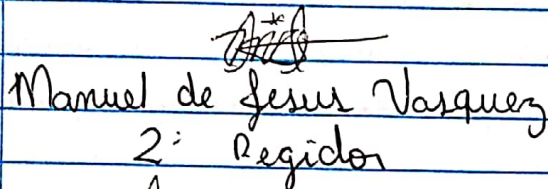 Manuel de Jesus Vasquez
2: Regidor